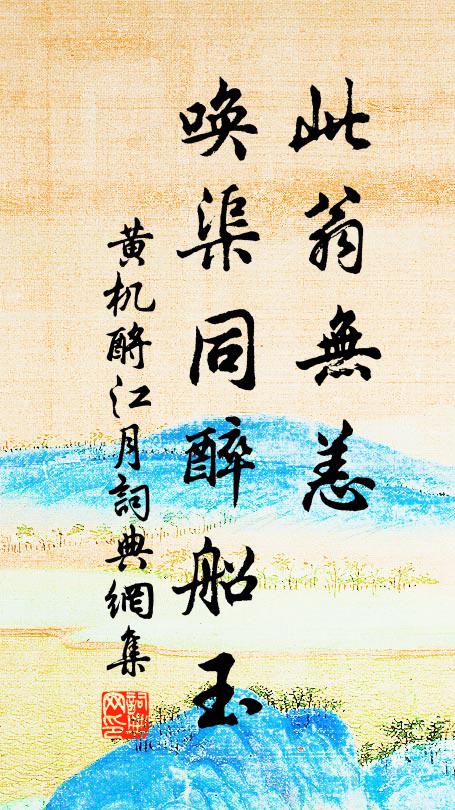 此翁無恙
喚渠同醉船玉
黄机酹江月詞典網集